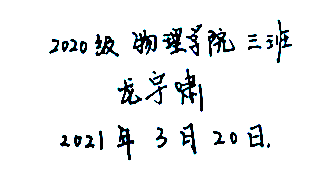 2020级 物理学院 三班
龙宇啸
2021年3月20日.